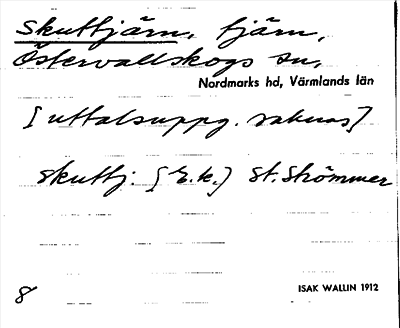 Skuttjärn, tjärn,
Östervallskogs sn,
Nordmarks hd, Värmlands län
[uttalsuppg. saknas]
skuttj. [E.k.] St. Strömmer
8
ISAK WALLIN 1912